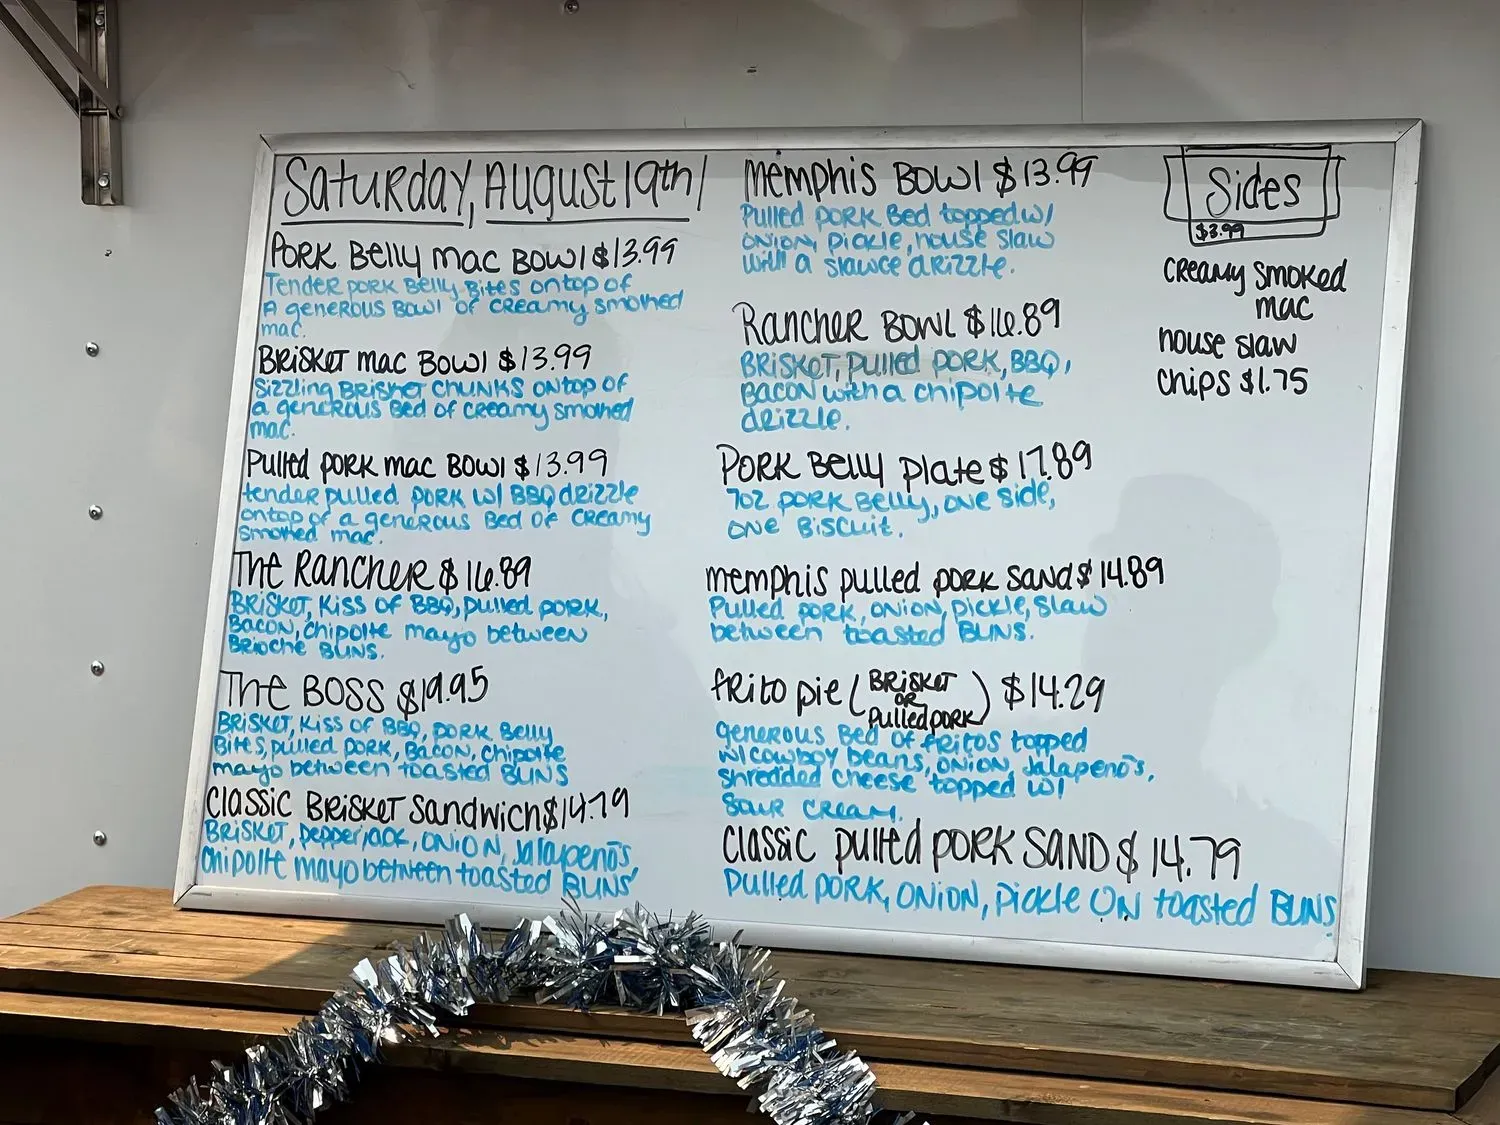 Saturday, August 19th
Pork Belly Mac Bowl $13.99
Tender pork Belly Bites ontop of
A generous Bowl of creamy smoked
mac.
Brisket mac Bowl $13.99
Sizzling Brisket chunks ontop of
a generous Bed of creamy smoked
mac.
Pulled pork mac Bowl $13.99
tender pulled pork w/ BBQ drizzle
ontop of a generous Bed of creamy
smoked mac.
The Rancher $16.89
Brisket, Kiss of BBQ, pulled pork,
Bacon, chipolte mayo between
Brioche Buns.
The Boss $19.95
Brisket, Kiss of BBQ, pork Belly
Bites, pulled pork, Bacon, chipolte
mayo between toasted Buns
Classic Brisket Sandwich $14.79
Brisket, pepperjack, onion, Jalapeño's
chipolte mayo between toasted Buns
Memphis Bowl $13.99
Pulled pork Bed topped w/
onion, pickle, house slaw
with a slawce drizzle.
Rancher Bowl $16.89
Brisket, pulled pork, BBQ,
Bacon with a chipolte
drizzle.
Pork Belly plate $17.89
7oz pork Belly, one side,
one Biscuit.
memphis pulled pork sand $14.89
Pulled pork, onion, pickle, slaw
between toasted Buns.
frito pie (Brisket or Pulled pork) $14.29
generous Bed of fritos topped
w/ cowboy beans, onion, Jalapeño's,
shredded cheese topped w/
sour cream.
Classic pulled pork sand $14.79
Pulled pork, onion, pickle on toasted Buns
Sides
$3.99
creamy smoked
mac
house slaw
chips $1.75